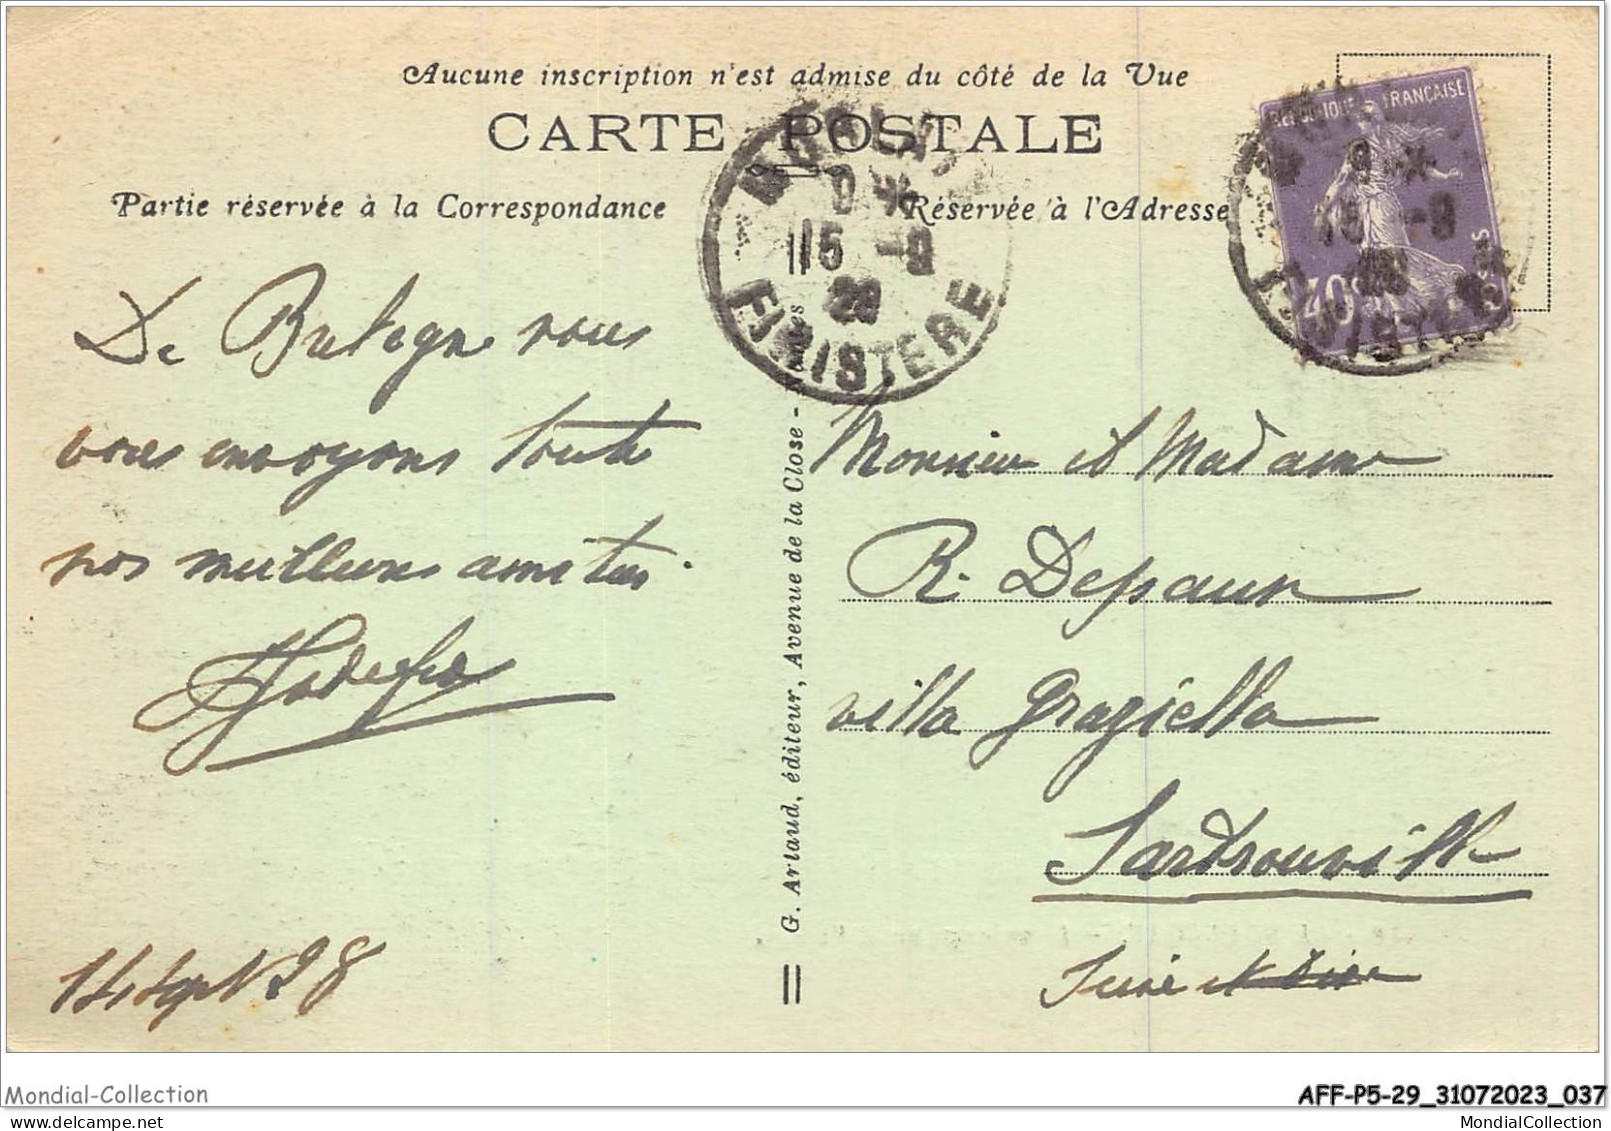 Aucune inscription n'est admise du côté de la Vue
CARTE POSTALE
Partie réservée à la Correspondance
Réservée à l'Adresse
15 -9
28
FINISTERE
REPUBLIQUE FRANÇAISE
40c
De Bretagne nous
vous envoyons toutes
nos meilleures amitiés.
14 Sept 28
G. Artaud, éditeur, Avenue de la Close -
Monsieur et Madame
R. Depaur
villa Graziella
Sartrouville
Seine et Oise
Mondial-Collection
AFF-P5-29_31072023_037
MondialCollection